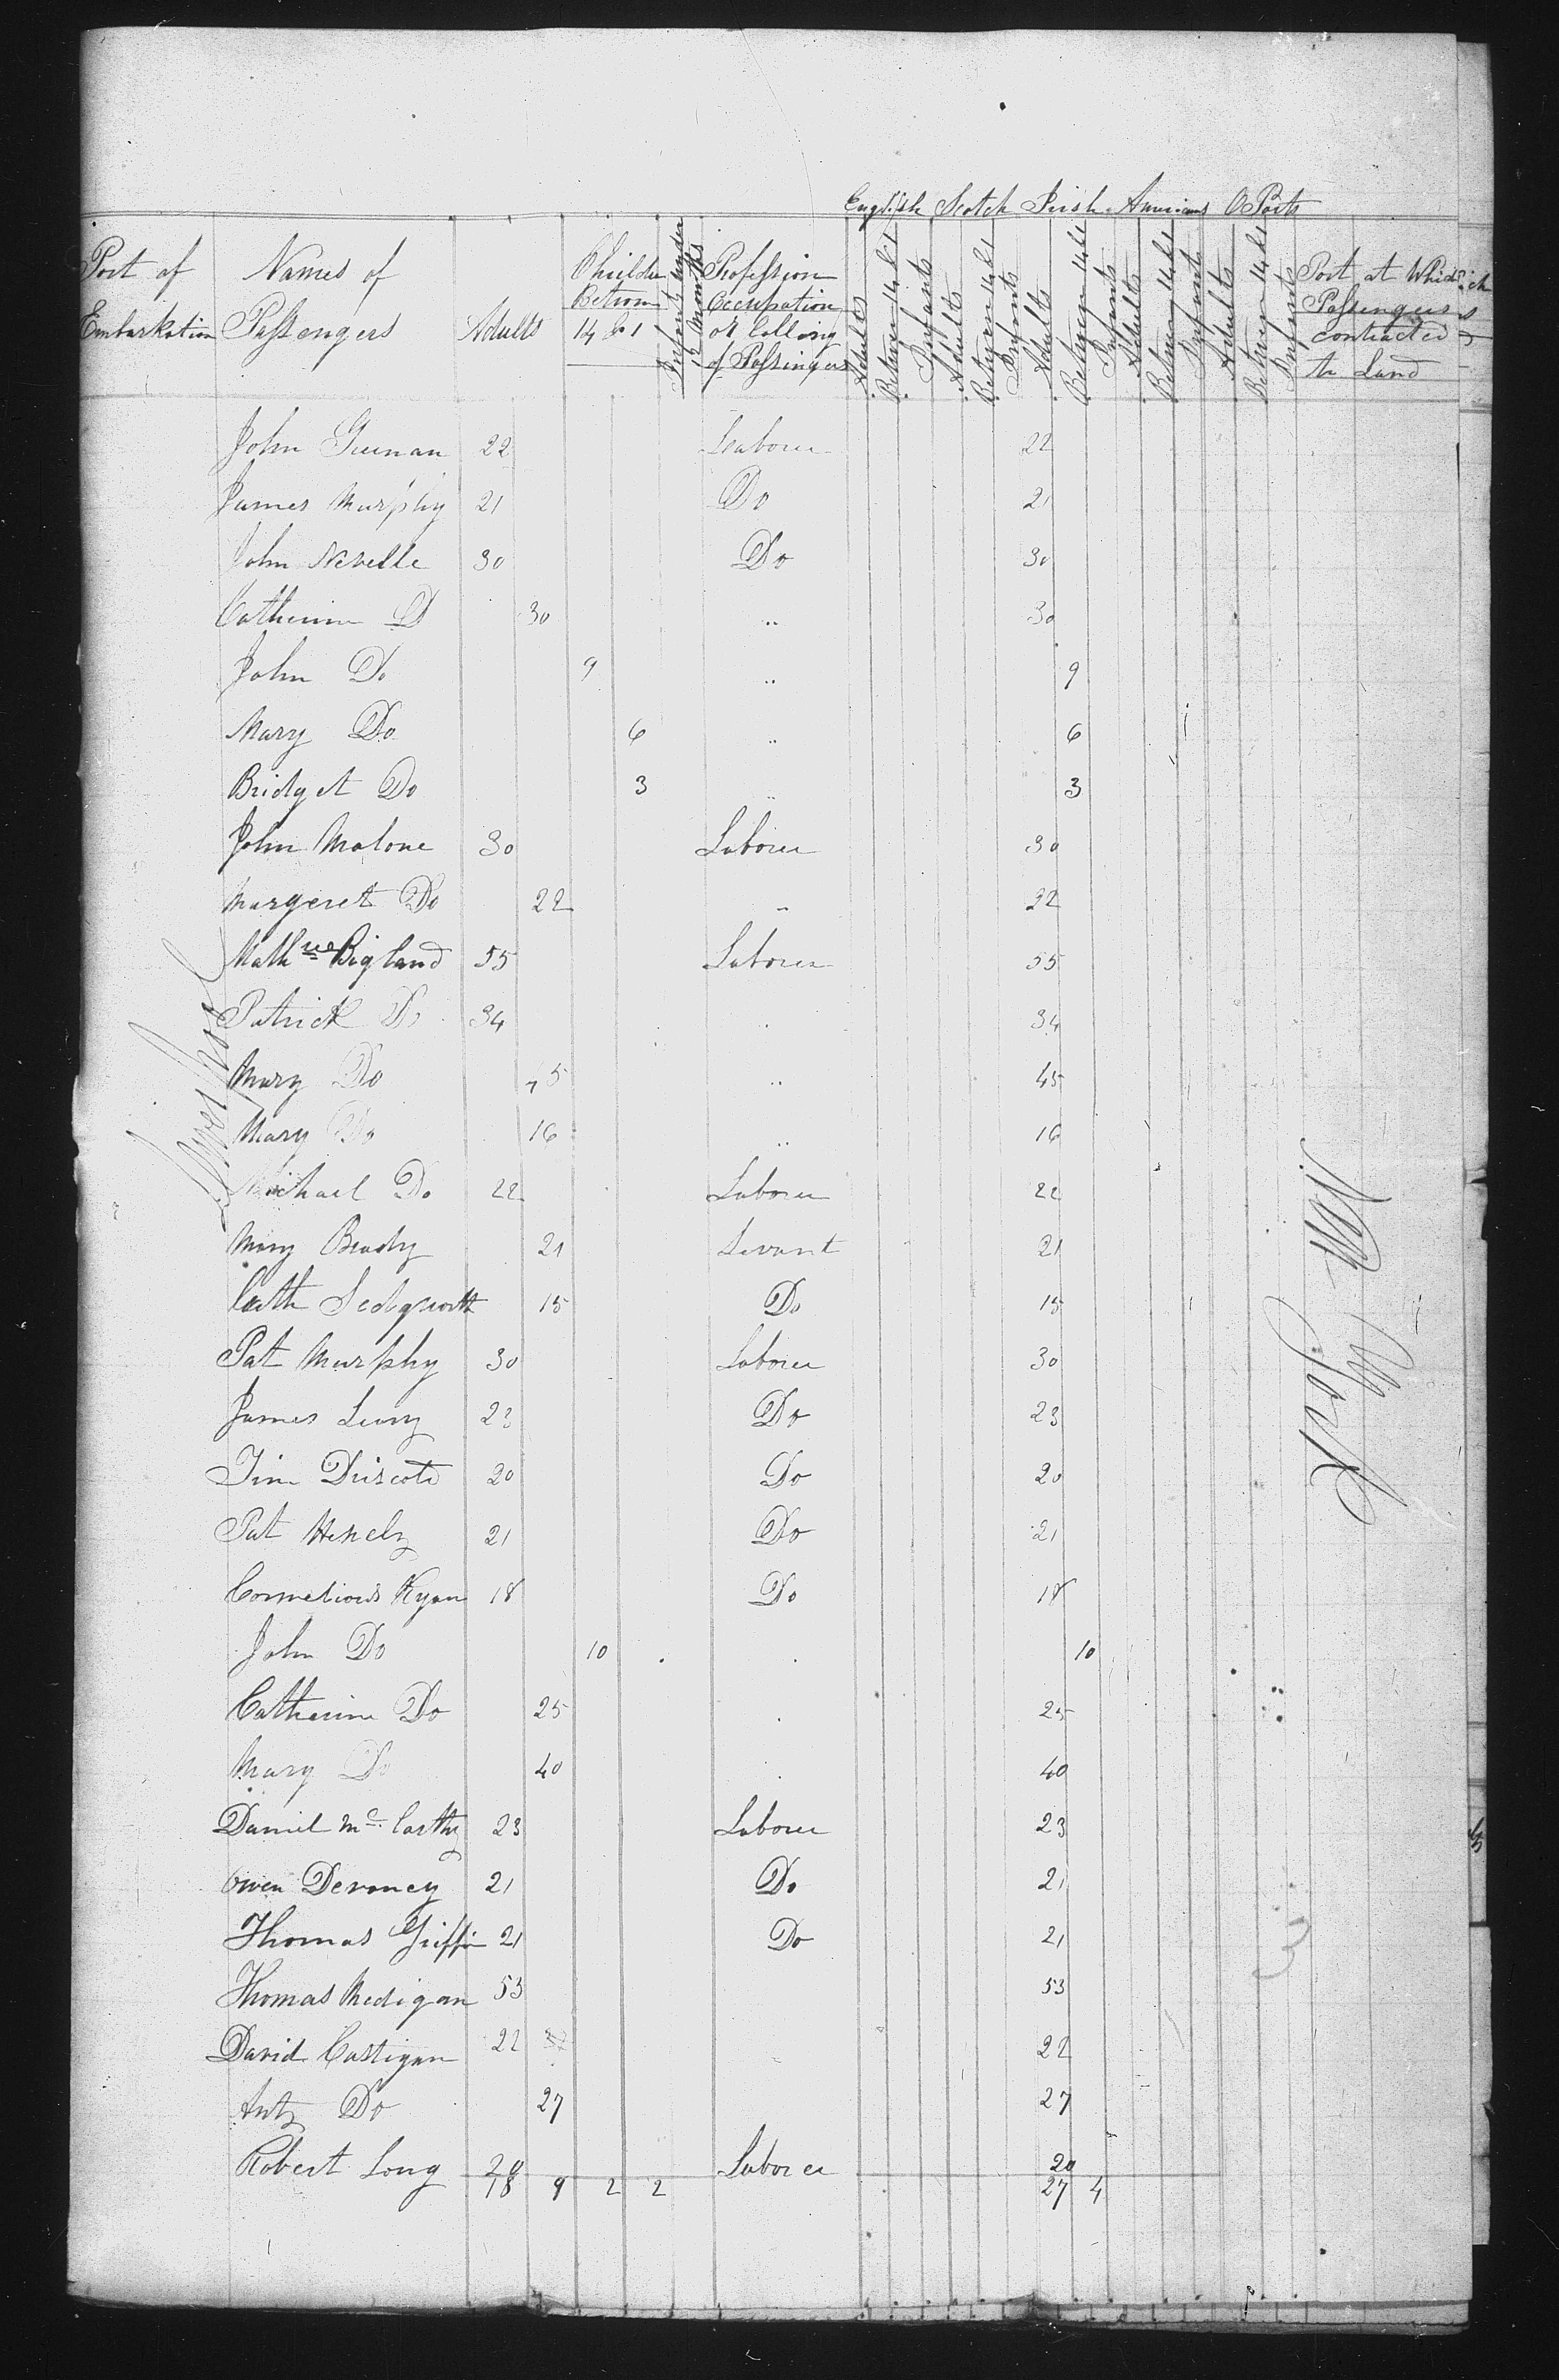 English Scotch Irish Americans O Parts
Port of Embarkation
Names of Passengers
Adults
Children Between 14 & 1
Infants under 12 Months
Profession Occupation or Calling of Passengers
Adults Between 14 & 1 Infants Adults Between 14 & 1 Infants Adults Between 14 & 1 Infants Adults Between 14 & 1 Infants Adults Between 14 & 1 Infants
Port at Which Passengers contracted to Land
Liverpool
New York
John 22 Laborer 22
James Murphy 21 Do 21
John Nevelle 30 Do 30
Catherine D 30 " 30
John Do 9 " 9
Mary Do 6 " 6
Bridget Do 3 " 3
John Malone 30 Laborer 30
Margeret Do 22 " 22
Bigland 55 Laborer 55
Patrick Do 34 34
Mary Do 45 " 45
Mary Do 16 " 16
Michael Do 22 Laborer 22
Mary Brady 21 Servant 21
Cath Sedgworth 15 Do 15
Pat Murphy 30 Laborer 30
James 23 Do 23
Tim Driscoll 20 Do 20
Pat 21 Do 21
Cornelious Ryan 18 Do 18
John Do 10 10
Catherine Do 25 25
Mary Do 40 40
Daniel Mc Carthy 23 Laborer 23
Owen Devaney 21 Do 21
Thomas Griffin 21 Do 21
Thomas Medigan 53 53
David Castigan 22 22
Do 27 27
Robert Long 20 Laborer 20
18 9 2 2 27 4